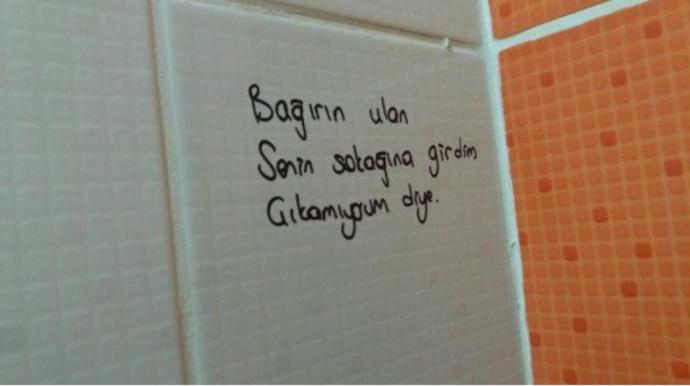 Bağırın ulan
Senin sokağına girdim
Çıkamıyorum diye.